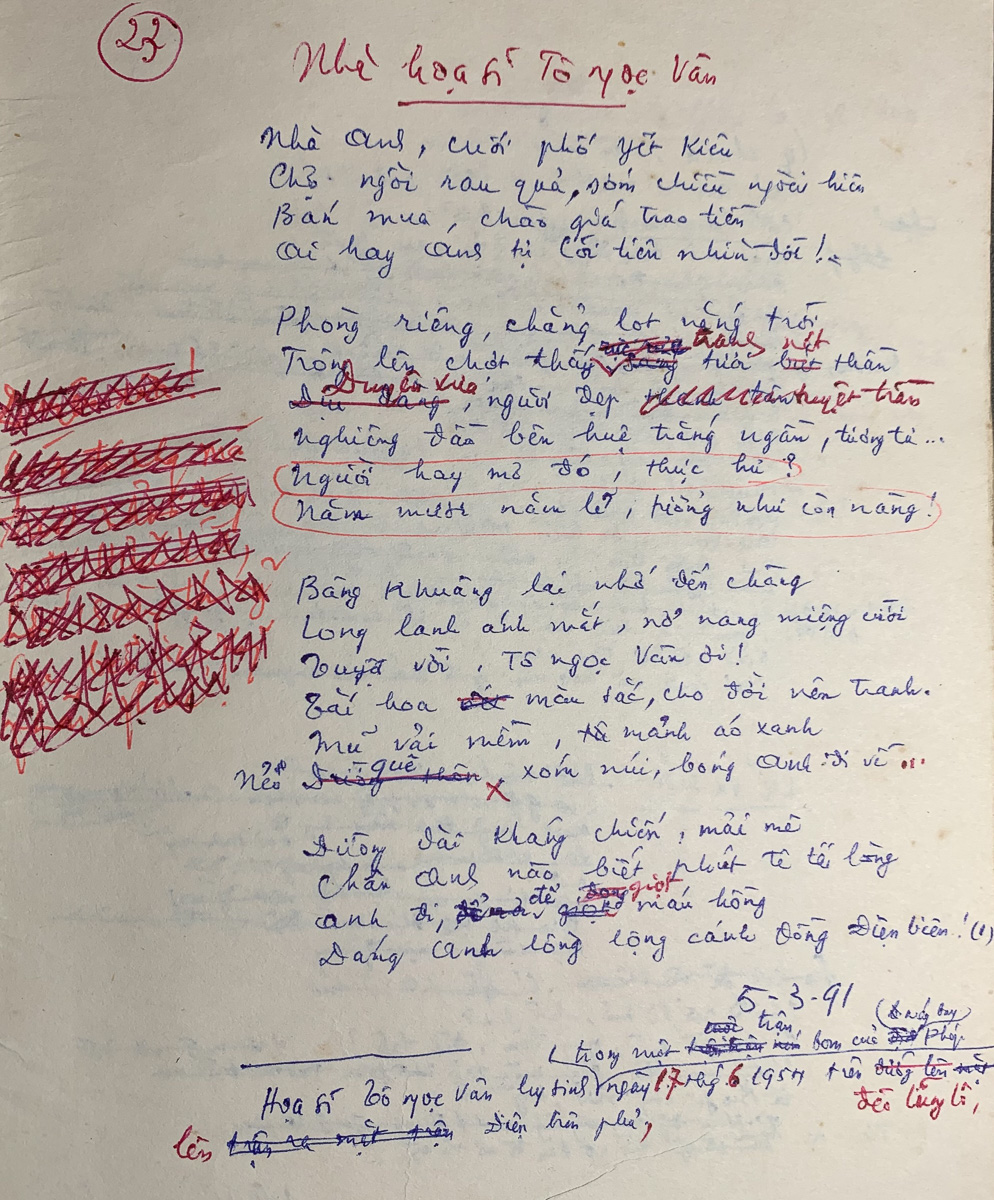 23
Nhà họa sĩ Tô Ngọc Vân
Nhà anh, cuối phố Yết Kiêu
Chợ ngồi rau quả, sớm chiều người hiên
Bán mua, chào giá trao tiền
Ai hay anh tự cõi tiên nhìn đời!
Phòng riêng, chẳng lọt nắng trời
Trông lên chợt thấy trang tươi nét thần
Duyên xưa, người đẹp tuyệt trần
Nghiêng đầu bên huệ trắng ngần, tương tư...
Người hay mơ đó, thực hư?
Năm mươi năm lẻ, tưởng như còn nàng!
Bâng khuâng lại nhớ đến chàng
Long lanh ánh mắt, nở nang miệng cười
Tuyệt vời, Tô Ngọc Vân ơi!
Tài hoa màu sắc, cho đời nên tranh.
Mũ vải mềm, mảnh áo xanh
Nẻo quê, xóm núi, bóng anh đi về...
Đường dài kháng chiến, mải mê
Chân anh nào biết phút tê tái lòng
Anh đi, để giọt máu hồng
Dáng anh lồng lộng cánh đồng Điện Biên! (1)
5-3-91
(trong một trận bom của máy bay Pháp
Họa sĩ Tô Ngọc Vân hy sinh ngày 17 thg 6 1954 trên
đèo Lũng Lô,
lên Điện Biên phủ,